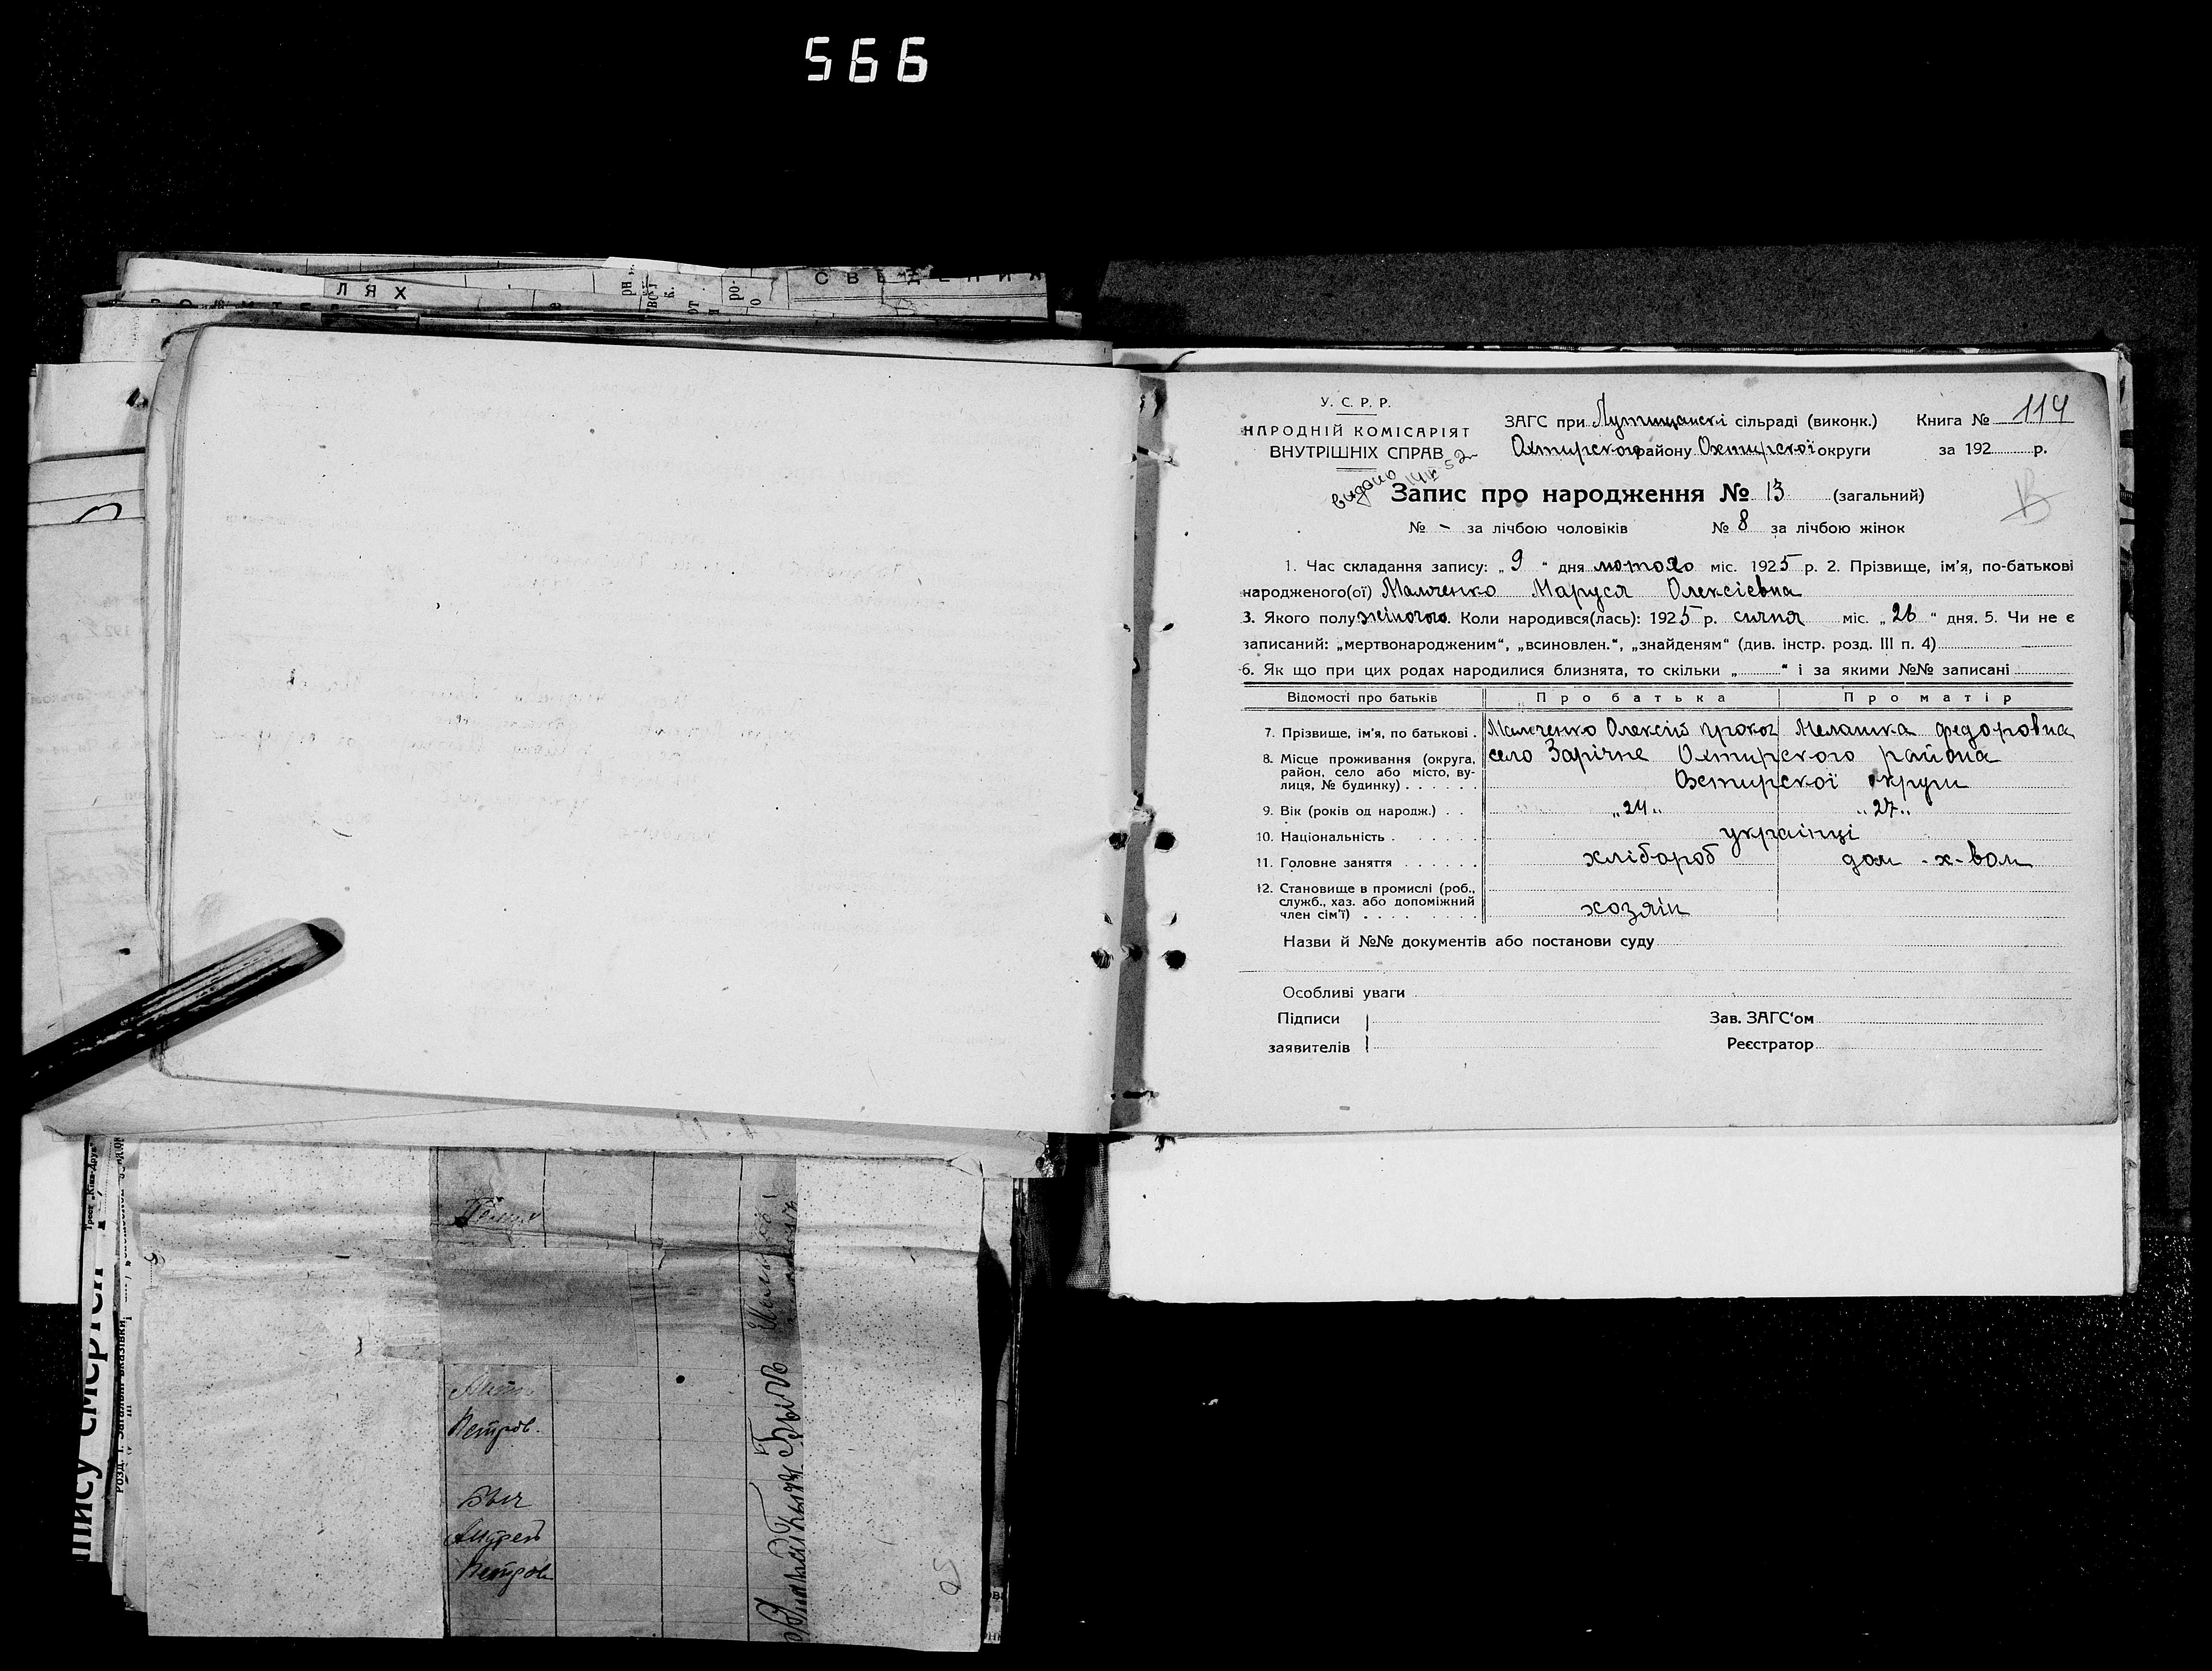 566
Л Я Х
С В Ѣ Д Е Н И
У. С. Р. Р.
НАРОДНІЙ КОМІСАРІЯТ
ВНУТРІШНІХ СПРАВ
ЗАГС при сільраді (виконк.) Книга № 114
Охтирского району Охтирскоі округи за 192 р.
видано
Запис про народження № 13 (загальний)
№ - за лічбою чоловіків № 8 за лічбою жінок
1. Час складання запису: „ 9 “ дня лютого міс. 1925 р. 2. Прізвище, ім’я, по-батькові
народженого(ої) Мамченко Маруся Олексієвна
3. Якого полу жіночого. Коли народився(лась): 1925 р. січня міс. „ 26 “ дня. 5. Чи не є
записаний: „мертвонародженим“, „всиновлен.“, „знайденям“ (див. інстр. розд. III п. 4)
6. Як що при цих родах народилися близнята, то скільки „ “ і за якими №№ записані
Відомості про батьків П р о б а т ь к а П р о м а т і р
7. Прізвище, ім’я, по батькові . Мамченко Олексій Прокоп Мелашка Федоровна
8. Місце проживання (округа, село Зарічне Охтирского района
район, село або місто, ву-
лиця, № будинку) . . . . . . Охтирскоі округи
9. Вік (років од народж.) . . „24„ „27„
10. Національність . . . . . . українці
11. Головне заняття . . . . . . хлібороб дом - х-вом
12. Становище в промислі (роб.,
служб., хаз. або допоміжний
член сім’ї) . . . . . . . хозяін
Назви й №№ документів або постанови суду
Особливі уваги
Підписи Зав. ЗАГС‘ом
заявителів Реєстратор
Петров.
Быч
Андрей
Петров